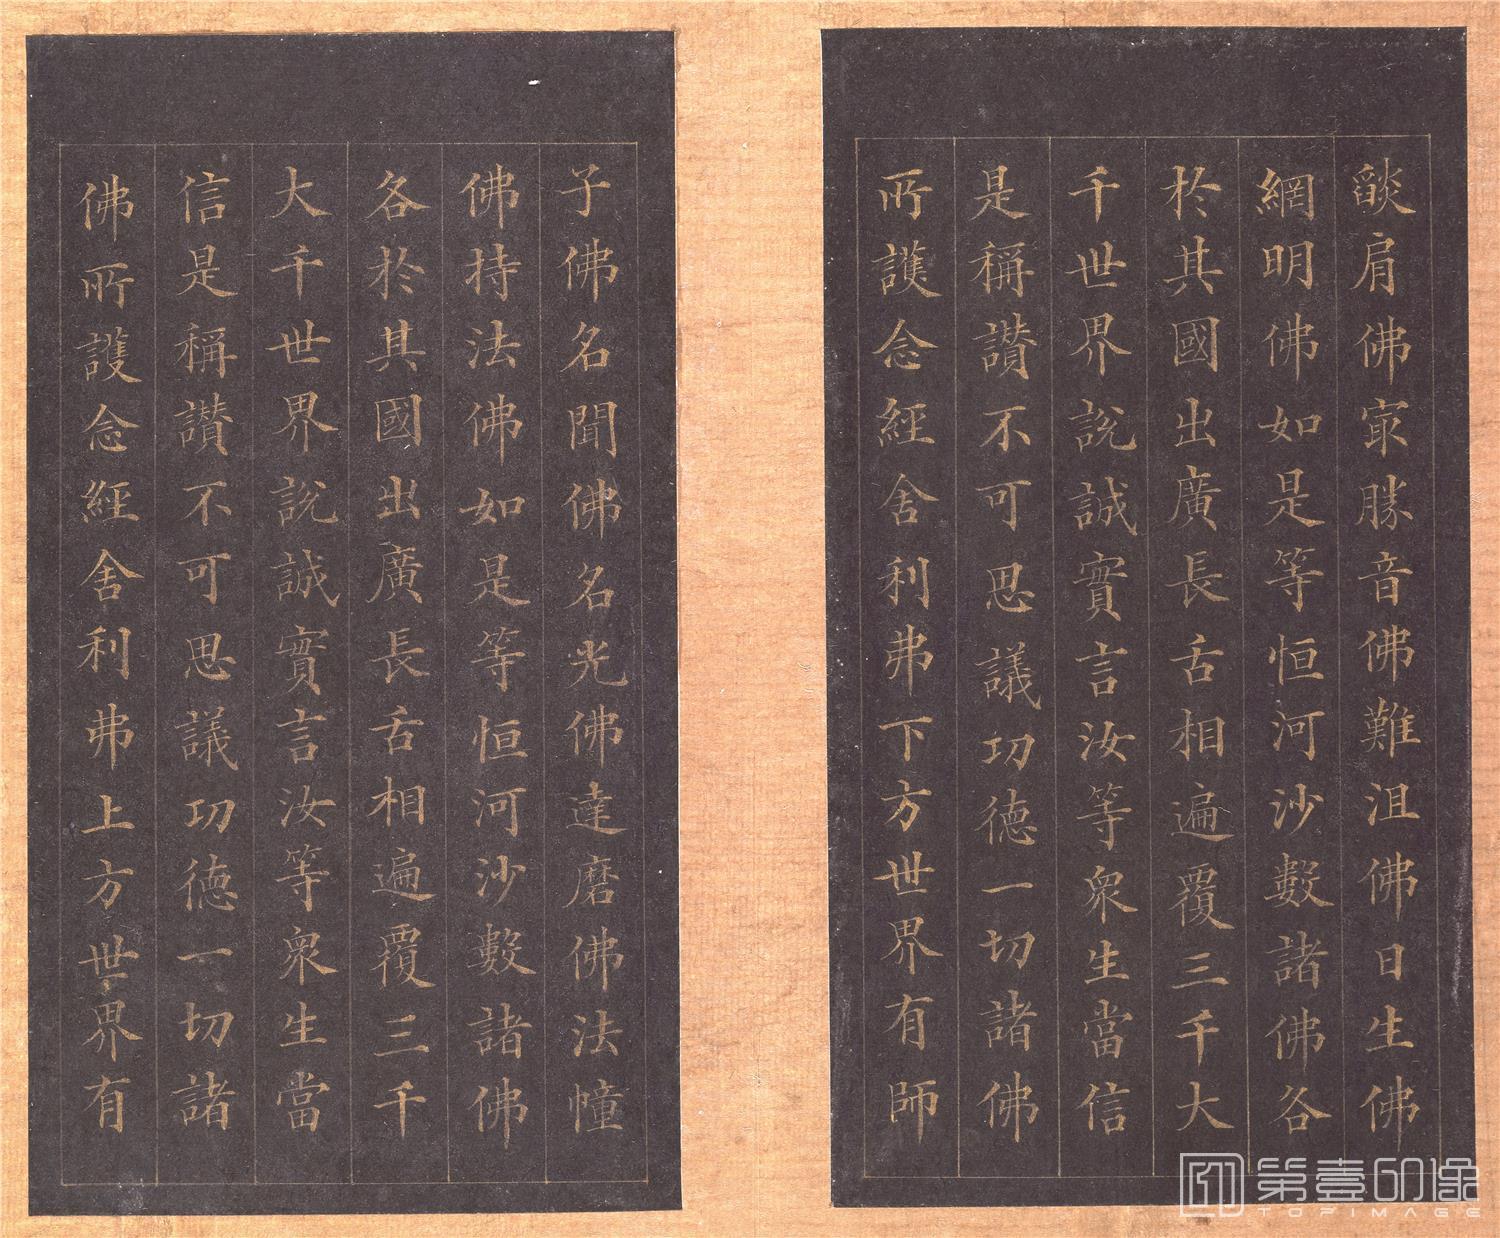 燄肩佛冣勝音佛難沮佛日生佛
網明佛如是等恒河沙數諸佛各
於其國出廣長舌相遍覆三千大
千世界說誠實言汝等衆生當信
是稱讚不可思議功德一切諸佛
所護念經舍利弗下方世界有師
子佛名聞佛名光佛達磨佛法幢
佛持法佛如是等恒河沙數諸佛
各於其國出廣長舌相遍覆三千
大千世界說誠實言汝等衆生當
信是稱讚不可思議功德一切諸
佛所護念經舍利弗上方世界有
第壹印像
TOPIMAGE